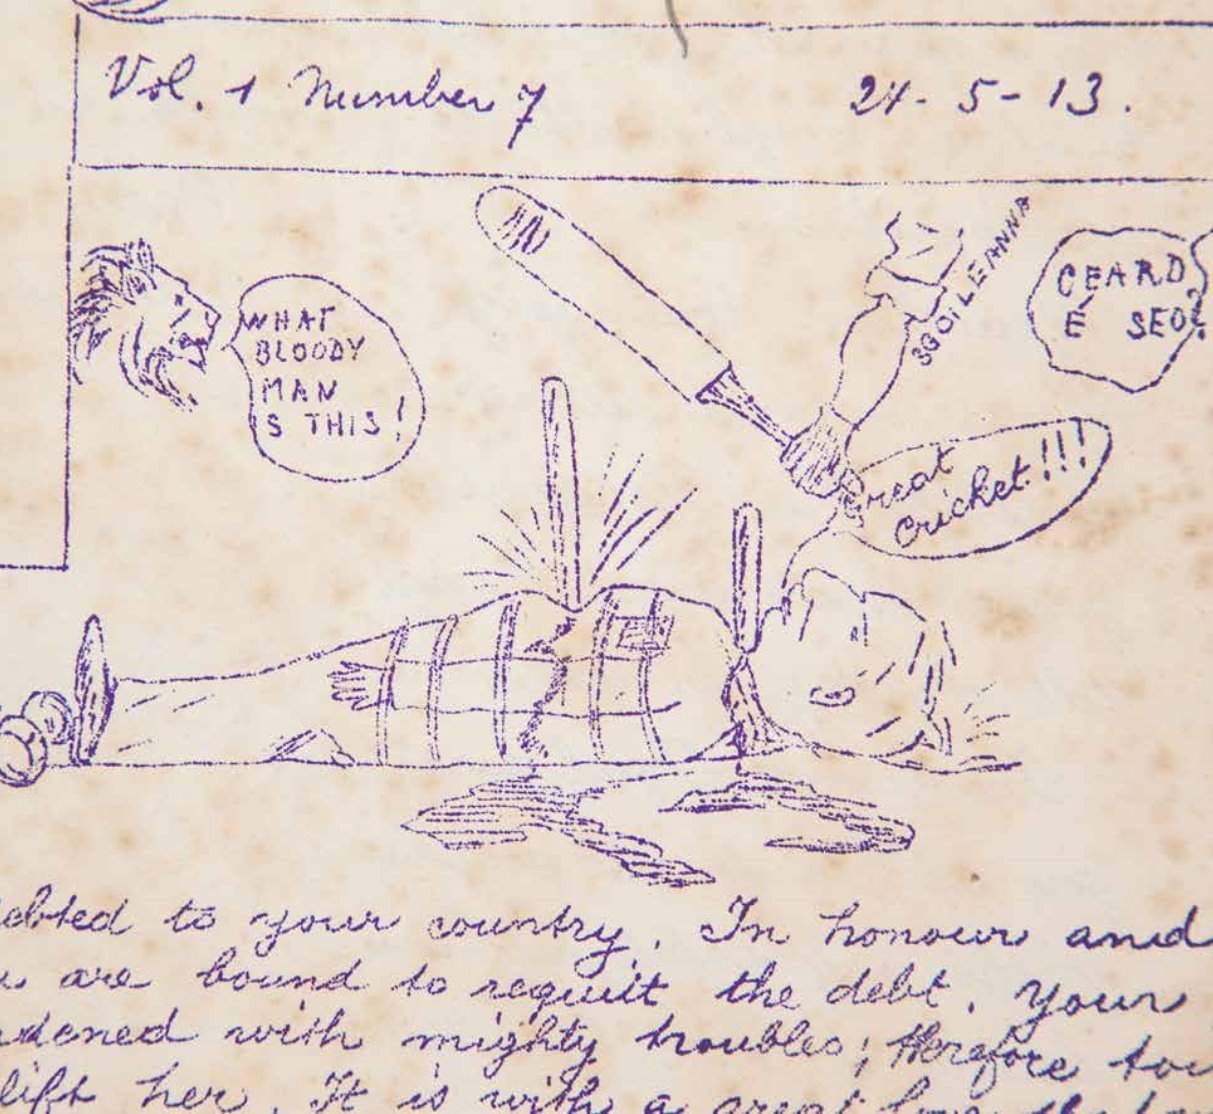 Vol. 1 Number 7
24-5-13.
WHAT
BLOODY
MAN
IS THIS!
SGOILEANNA
CEARD
É SEO?
Great
Cricket!!!
ebted to your country. In honour and
are bound to requiit the debt. Your
dened with mighty troubles; therefore
lift her. It is with a great